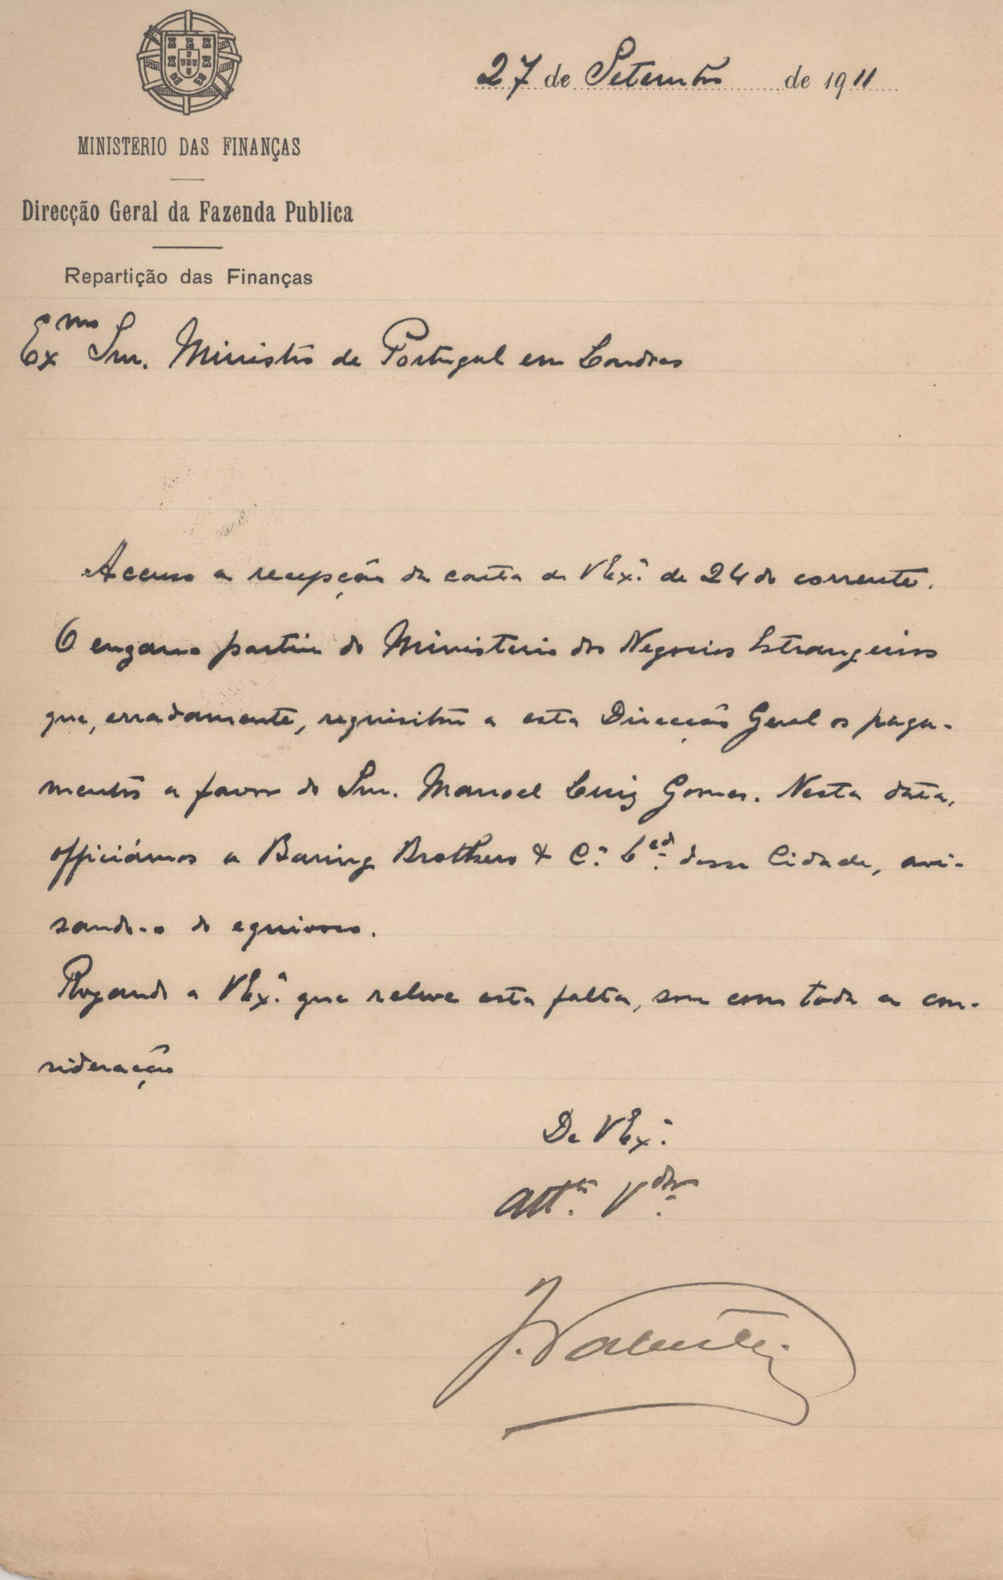 27 de Setembro de 1911
MINISTERIO DAS FINANÇAS
Direcção Geral da Fazenda Publica
Repartição das Finanças
Exmo Snr. Ministro de Portugal em Londres
Accuso a recepção da carta de VExª de 24 do corrente.
O engano partiu do Ministerio dos Negocios Estrangeiros
que, erradamente, requisitou a esta Direcção Geral os paga-
mentos a favor do Snr. Manoel Luiz Gomes. Nesta data,
officiámos a Baring Brothers & Cª Led dessa Cidade, avi-
sando-o do equivoco.
Rogando a VExª que releve esta falta, sou com toda a con-
sideração
De VExª
Attº Vdor
J.